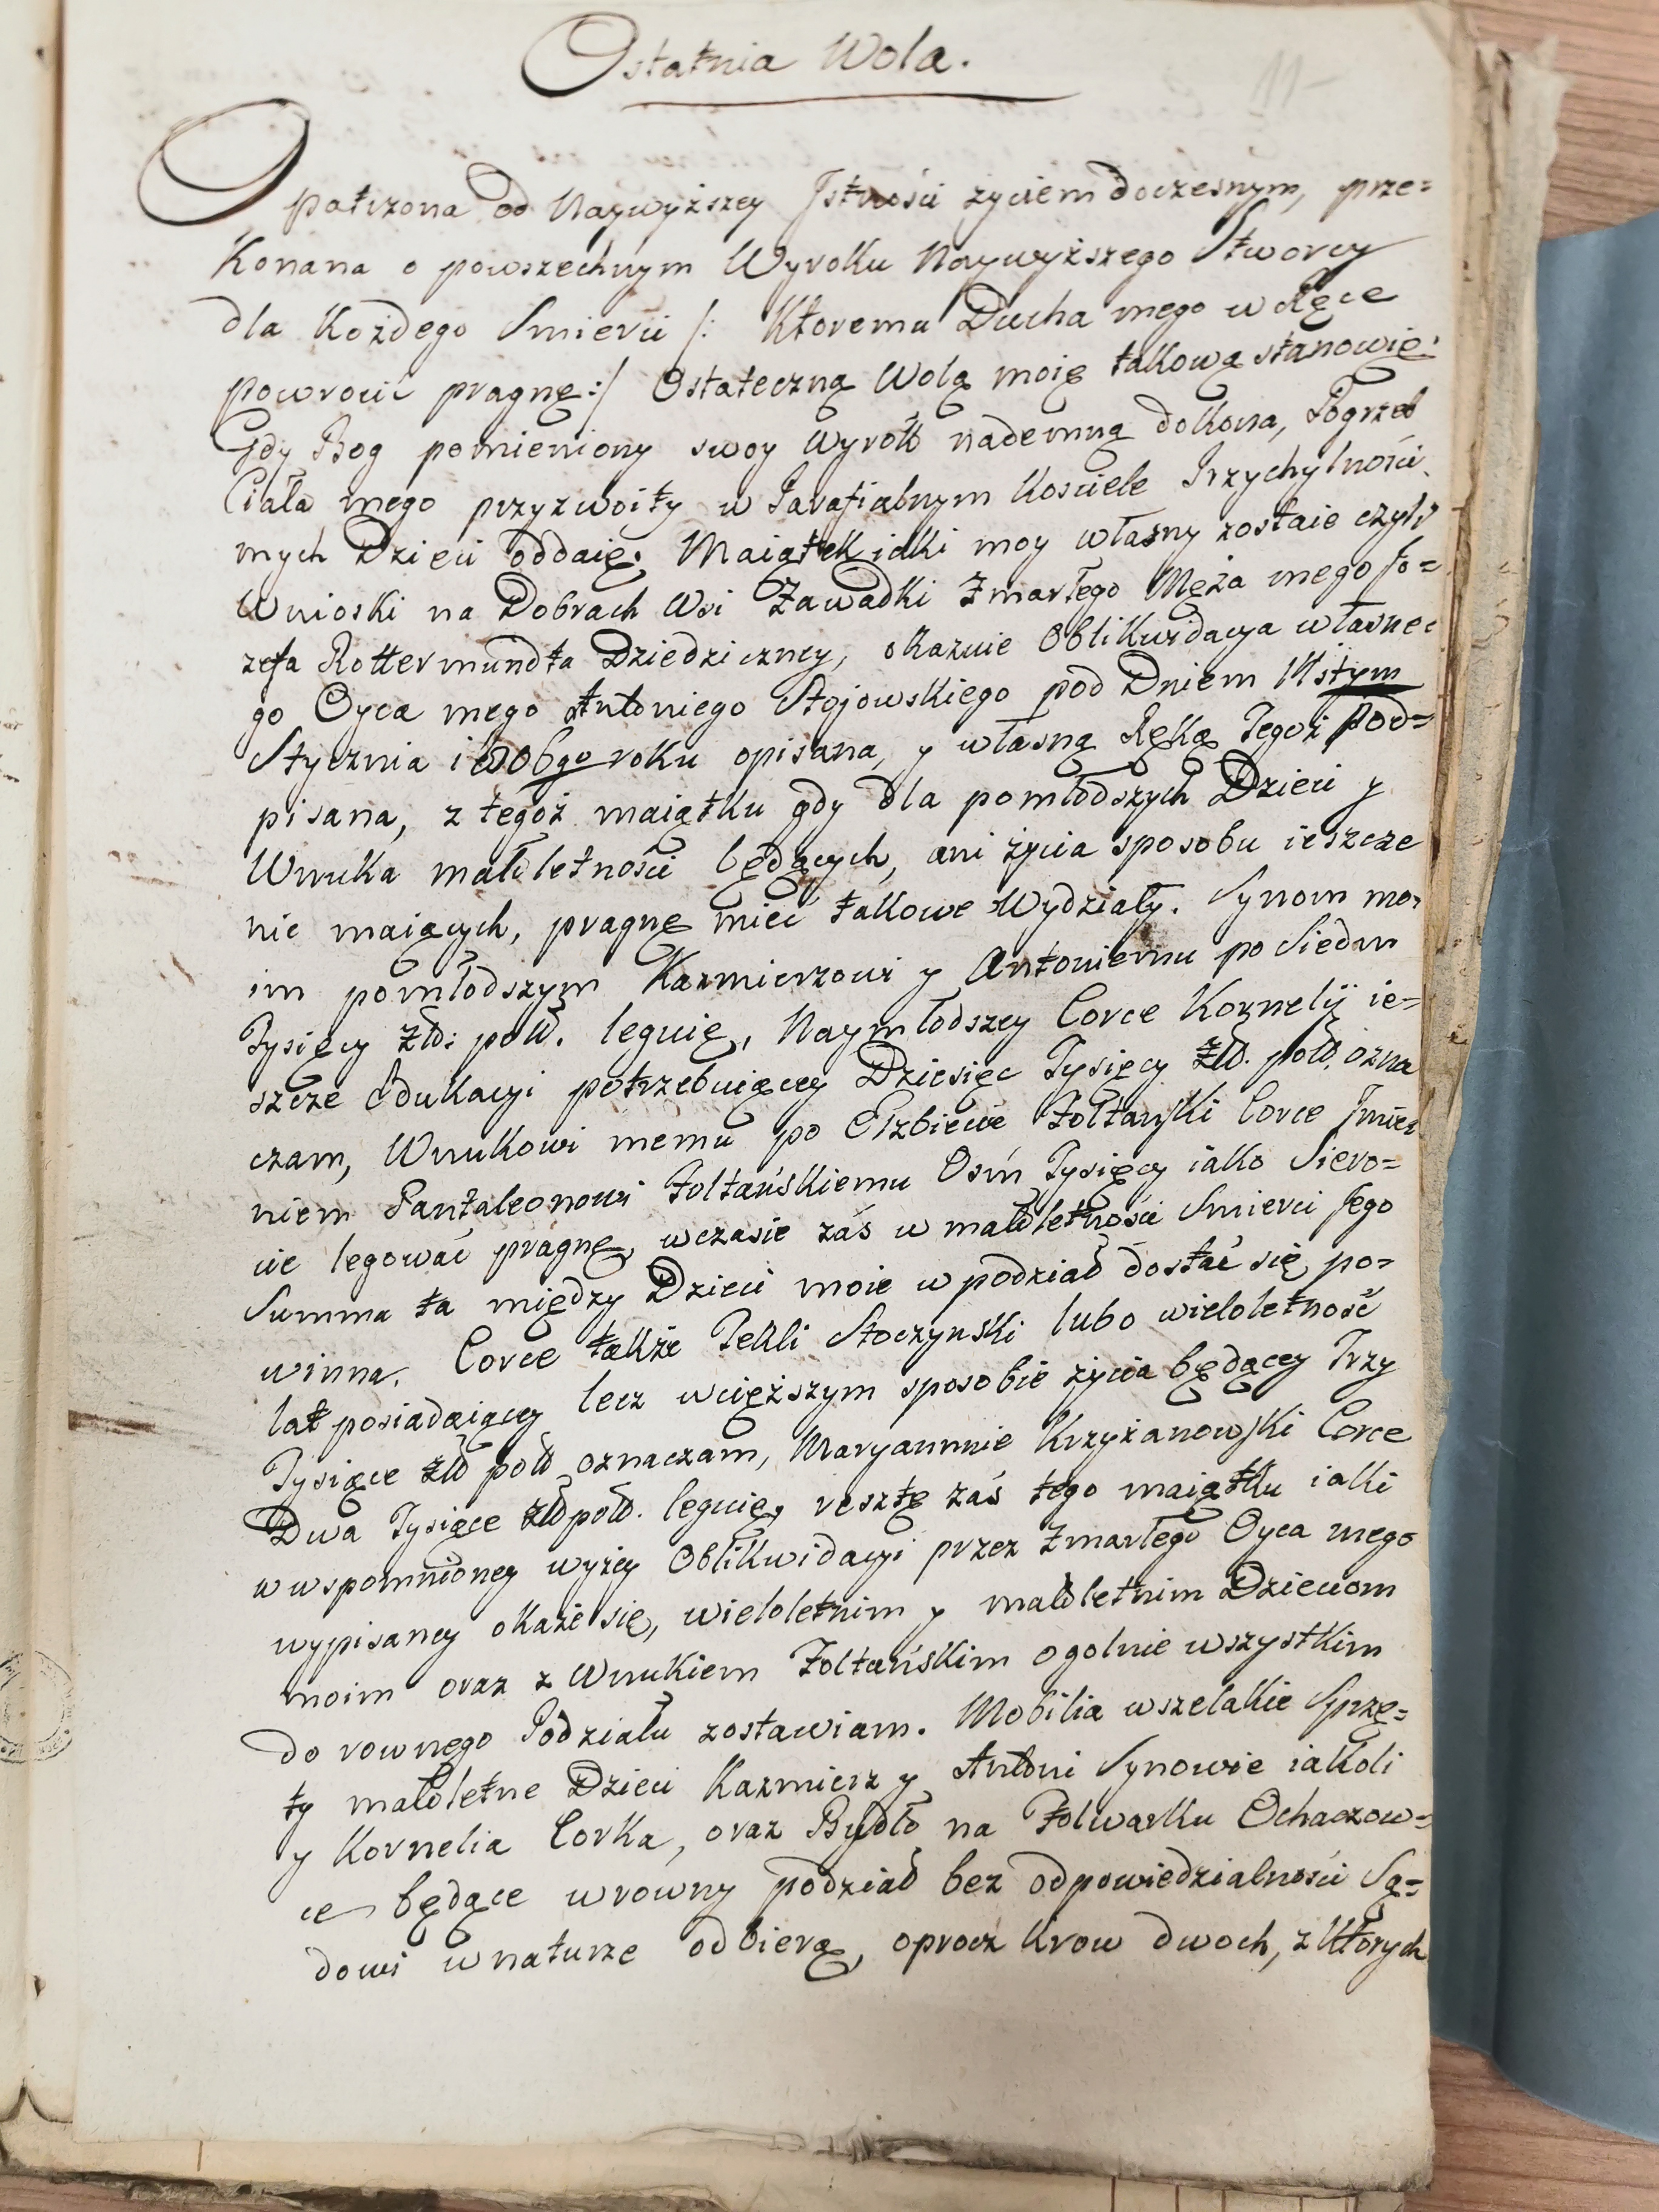 Ostatnia Wola.
11
Opatrzona od Naywyższey Jstności życiem doczesnym, prze=
Konana o powszechnym Wyroku Naywyższego Stworcy
dla Każdego Smierci /: Ktoremu Ducha mego w Ręce
powrocić pragnę :/ Ostateczną Wolą moię takową stanowię:
Gdy Bog pomieniony swoy Wyrok nademną dokona, Pogrzeb
Ciała mego przyzwoity w Parafialnym Kosciele Przychylności
mych Dzieci oddaię; Maiątek iaki moy własny zostaie czyli
Wnioski na Dobrach Wsi Zawadki Zmarłego Męża mego Jo=
zefa Rottermundta Dziedziczney, okazuie Oblikwidacya własne=
go Oyca mego Antoniego Stojowskiego pod Dniem
Stycznia roku opisana, y własną Ręką Tegoż pod=
pisana, z tegoż maiątku gdy dla pomłodszych Dzieci y
Wnuka małoletności będących, ani życia sposobu ieszcze
nie maiących, pragnę mieć takowe Wydziały. Synom mo=
im pomłodszym Kazmierzowi y Antoniemu po Siedm
Tysięcy Złł: poll. leguię, Naymłodszey Corce Kornelij ie=
szcze Edukacyi potrzebuiącey Dziesięc Tysięcy Złł. poll. ozna
czam, Wnukowi memu po Elzbiecie Żołtański Corce Jmie
niem Pantaleonowi Żołtańskiemu Osm Tysięcy iako Siero=
cie legować pragnę, wczasie zaś w małoletności Smierci Jego
Summa ta między Dzieci moie w podział dostać się po=
winna. Corce także Tekli Stoczynski lubo wieloletność
lat posiadaiącey lecz wcięższym sposobie życia będącey Trzy
Tysiące Złł poll oznaczam, Maryannie Krzyżanowski Corce
Dwa Tysiące Złł poll. leguię, resztę zaś tego maiątku iaki
w wspomnioney wyżey Oblikwidacyi przez Zmarłego Oyca mego
wypisaney okaże się, wieloletnim y małoletnim Dzieciom
moim oraz z Wnukiem Żołtańskim ogolnie wszystkim
do rownego Podziału zostawiam. Mobilia wszelakie Sprzę=
ty małoletne Dzieci Kazmierz y Antoni Synowie iakoli
y Kornelia Corka, oraz Bydło na Folwarku Ochaczow=
ce będące wrowny podział bez odpowiedzialności Są=
dowi wnaturze odbierą, oprocz Krow dwoch, z Ktorych